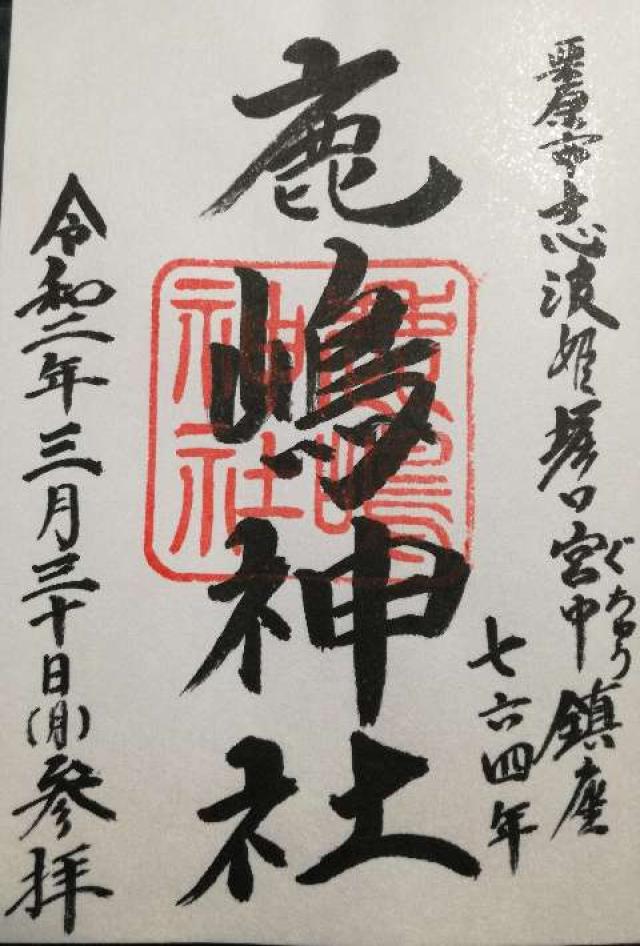 栗原市志波姫堀口宮中鎮座
ぐちゅう
七六四年
鹿嶋神社
鹿嶋神社
令和二年三月三十日(月)参拝